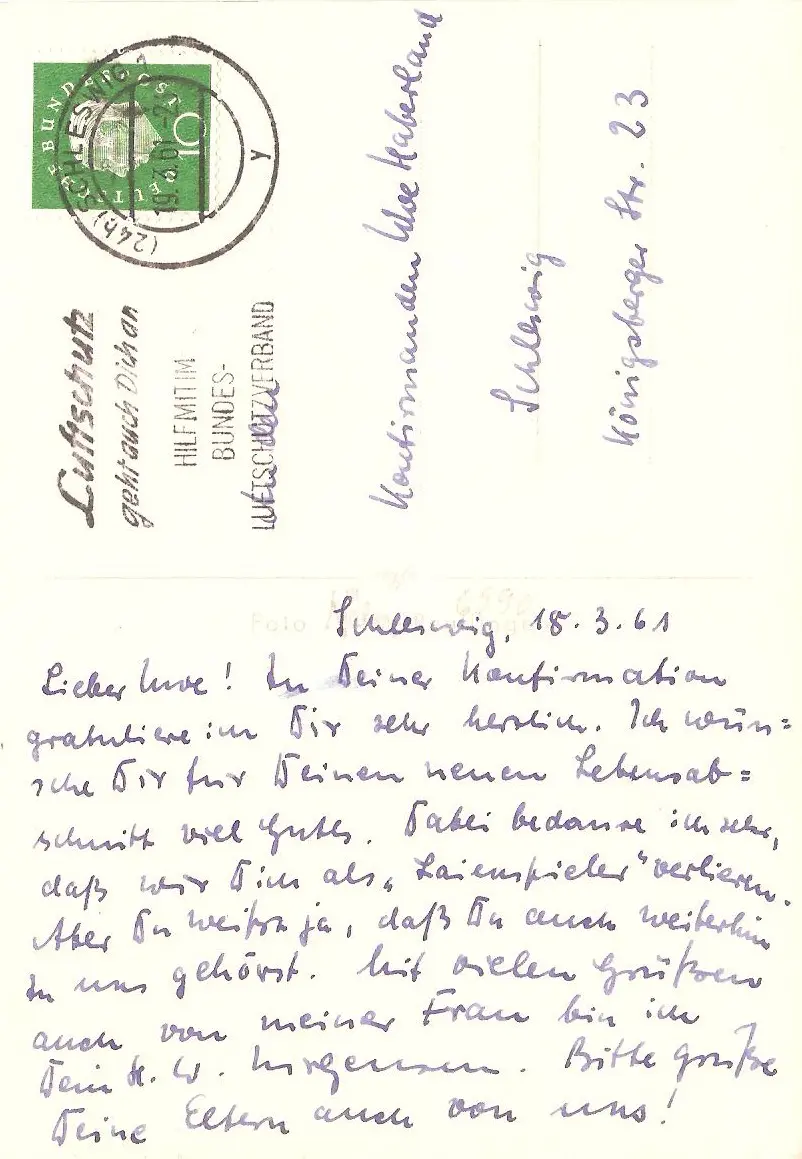 DEUTSCHE BUNDESPOST
10
(24b) SCHLESWIG 1
19.3.61
y
Luftschutz
geht auch Dich an
HILF MIT IM
BUNDES-
LUFTSCHUTZVERBAND
Konfirmanden Uwe Haberland
Schleswig
Königsberger Str. 23
Foto
Schleswig, 18.3.61
Lieber Uwe! Zu Deiner Konfirmation
gratuliere ich Dir sehr herzlich. Ich wün=
sche Dir für Deinen neuen Lebensab=
schnitt viel Gutes. Dabei bedaure ich sehr,
daß wir Dich als „Laienspieler“ verlieren.
Aber Du weißt ja, daß Du auch weiterhin
zu uns gehörst. Mit vielen Grüßen
auch von meiner Frau bin ich
Dein H. W. Bitte grüße
Deine Eltern auch von uns!